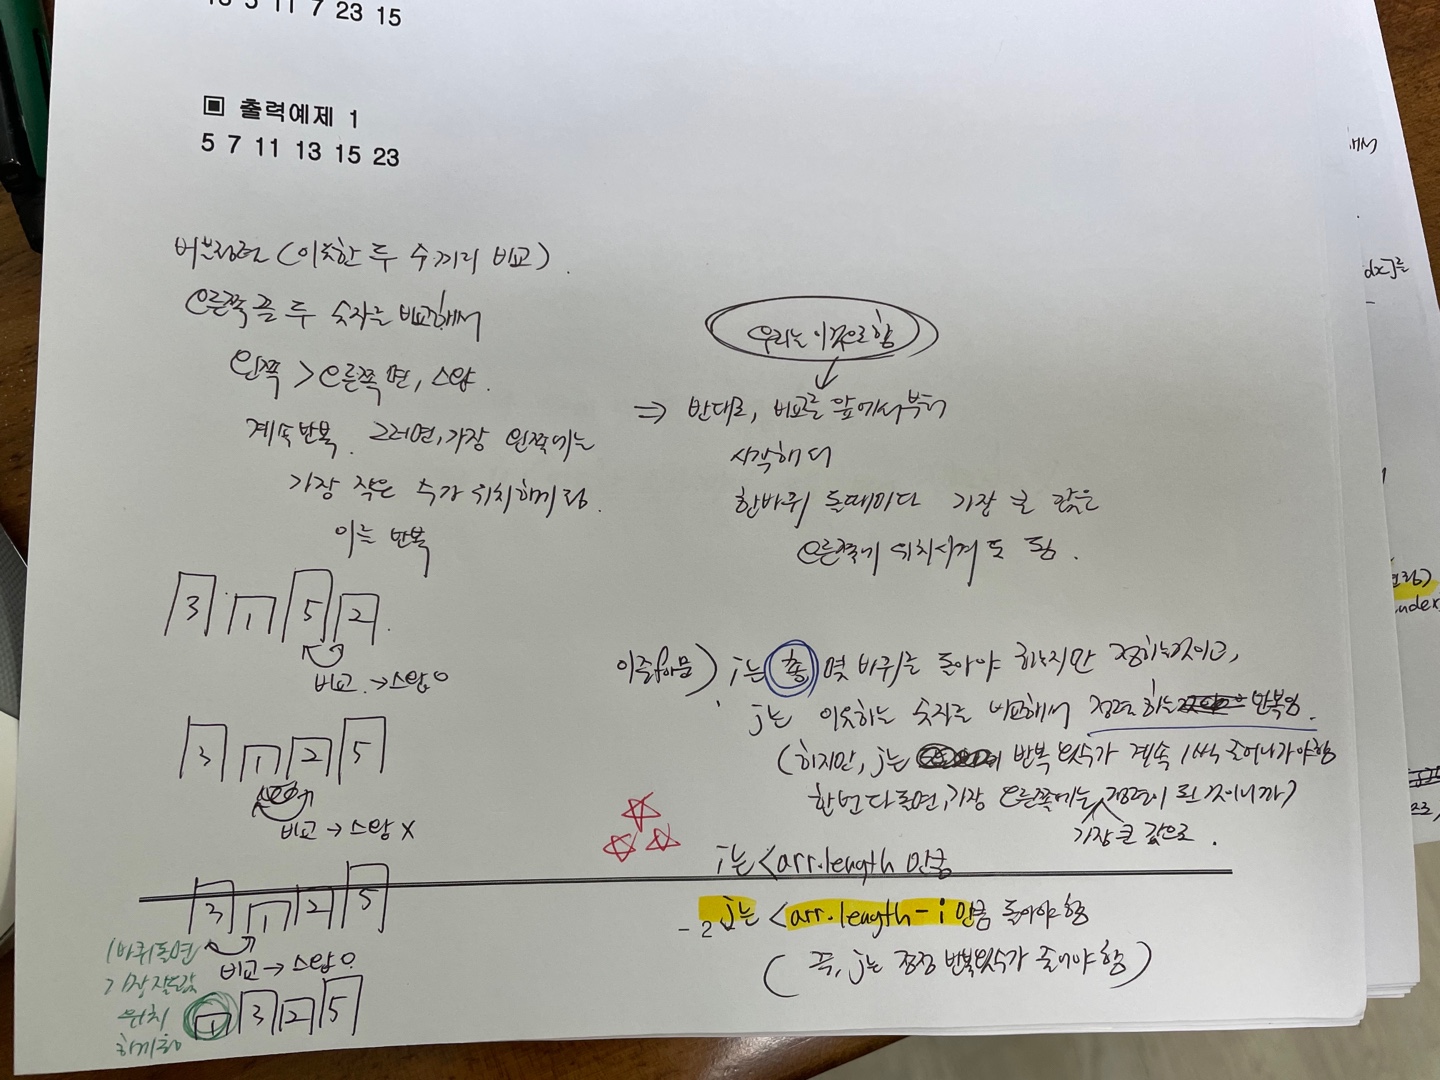 5 11 7 23 15
▣ 출력예제 1
5 7 11 13 15 23
버블정렬 (이웃한 두 수끼리 비교).
오른쪽 끝 두 숫자를 비교해서
왼쪽 > 오른쪽 면, 스왑.
계속 반복. 그러면, 가장 왼쪽에는
가장 작은 수가 위치하게 됨.
이를 반복
3 1 5 2
비교 → 스왑 O
3 1 2 5
비교 → 스왑 X
3 1 2 5
비교 → 스왑 O
1바퀴돌면
가장 작은값
위치
하게됨
1 3 2 5
우리는 이것으로 함
⇒ 반대로, 비교를 앞에서부터
시작해서
한바퀴 돌때마다 가장 큰 값을
오른쪽에 위치시켜도 됨.
이중for문) i는 총 몇 바퀴를 돌아야 하는지만 정하는것이고,
j는 이웃하는 숫자를 비교해서 정렬하는 반복임.
(하지만, j는 반복 횟수가 계속 1씩 줄어나가야함
한번 다 돌면, 가장 오른쪽에는 정렬이 된 것이니까)
가장 큰 값으로.
i는 < arr.length 만큼
j는 < arr.length - i 만큼 돌아야 함
(즉, j는 점점 반복횟수가 줄어야 함)
- 2 -
해서
dx]를